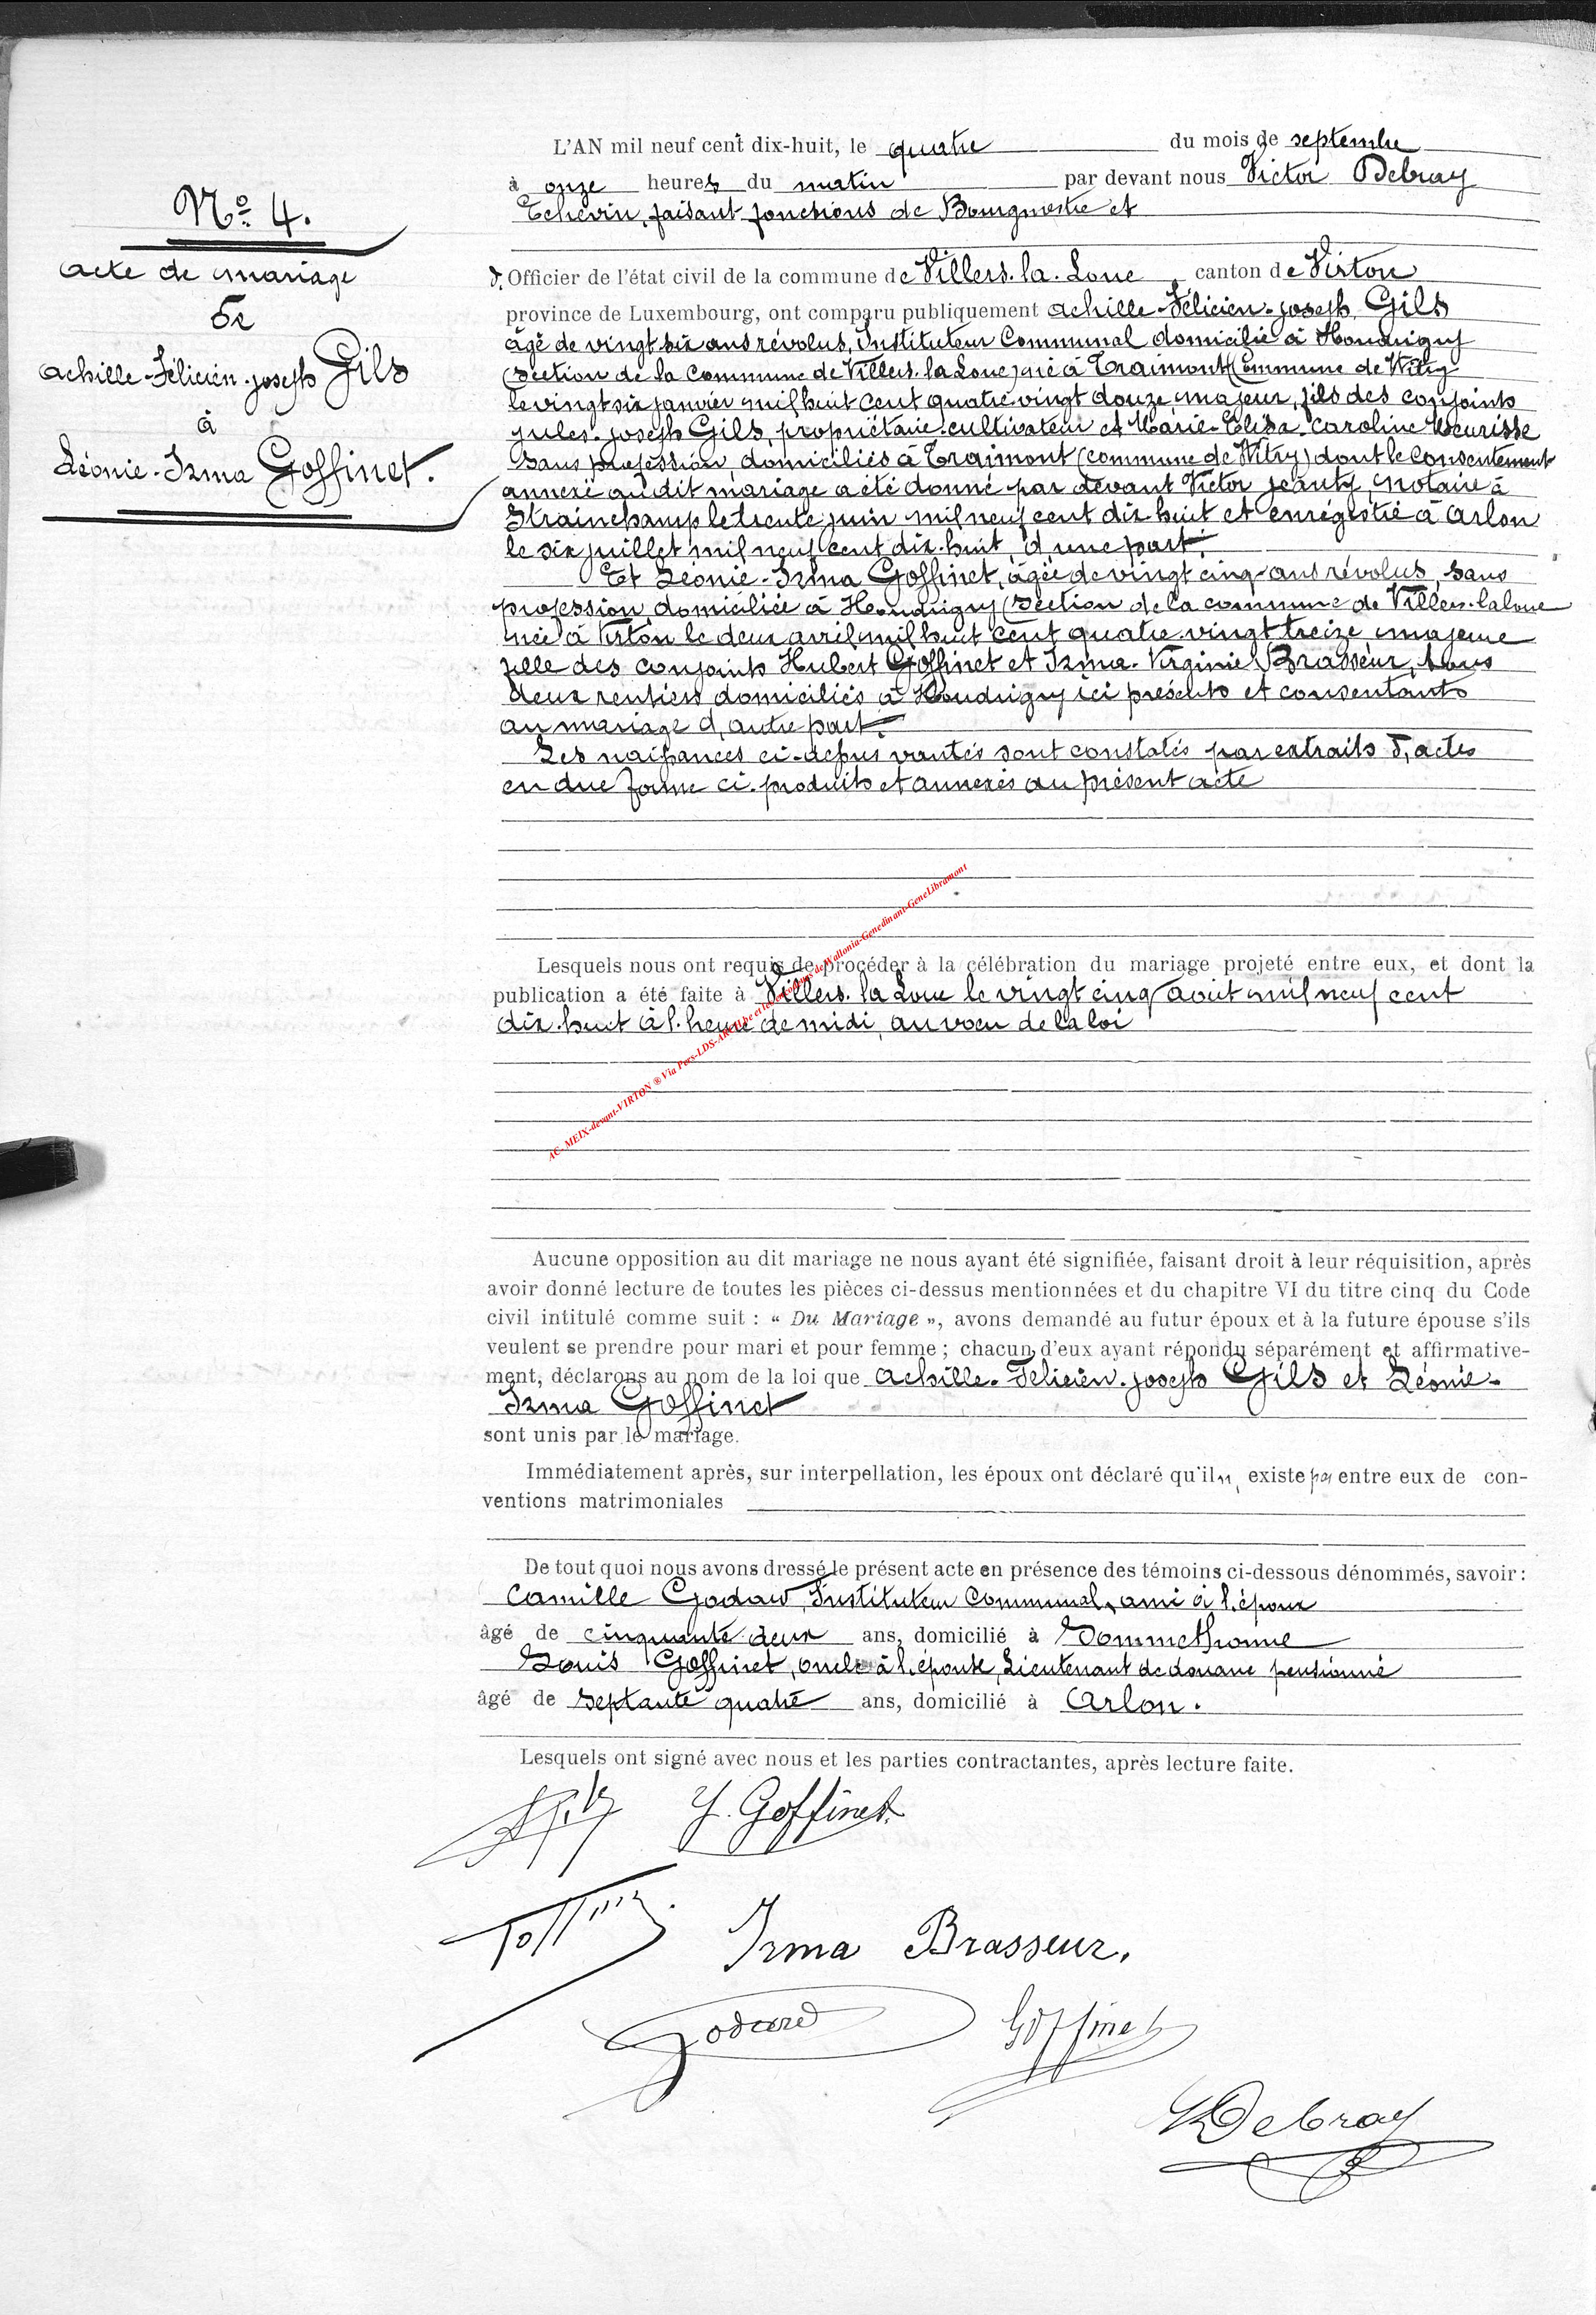 N° 4.
acte de mariage
De
achille-Félicien-joseph Gils
à
Léonie-Irma Goffinet.
L'AN mil neuf cent dix-huit, le quatre du mois de septembre
à onze heures du matin par devant nous Victor Debray
Echevin, faisant fonctions de Bourgmestre et
d'Officier de l'état civil de la commune de Villers-la-Loue, canton de Virton
province de Luxembourg, ont comparu publiquement achille-Félicien-joseph Gils
âgé de vingt six ans révolus, Instituteur Communal domicilié à Houdrigny
(section de la commune de Villers-la-Loue) né à Traimont (commune de Witry
le vingt six janvier mil huit cent quatre vingt douze, majeur, fils des conjoints
jules-joseph Gils, propriétaire-cultivateur et Marie-Elisa-Caroline Meurisse
sans profession, domiciliés à Traimont (commune de Witry) dont le consentement
annexé au dit mariage a été donné par devant Victor jeanty, notaire à
Strainchamp le trente juin mil neuf cent dix huit et enregistré à Arlon
le six juillet mil neuf cent dix-huit, d'une part.
Et Léonie-Irma Goffinet, âgée de vingt cinq ans révolus, sans
profession, domiciliée à Houdrigny (section de la commune de Villers-la loue
née à Virton le deux avril mil huit cent quatre-vingt treize, majeure
fille des conjoints Hubert Goffinet et Irma-Virginie Brasseur, tous
deux rentiers domiciliés à Houdrigny ici présents et consentants
au mariage d'autre part.
Les naissances ci-dessus vantés sont constatés par extraits d'actes
en due forme ci-produits et annexés au présent acte
Lesquels nous ont requis de procéder à la célébration du mariage projeté entre eux, et dont la
publication a été faite à Villers-la Loue le vingt cinq août mil neuf cent
dix-huit à l'heure de midi, au voeu de la loi
AC-MEIX-devant-VIRTON ® Via Pers-LDS-ARCH de Wallonia-Genedinant-GeneLibramont
Aucune opposition au dit mariage ne nous ayant été signifiée, faisant droit à leur réquisition, après
avoir donné lecture de toutes les pièces ci-dessus mentionnées et du chapitre VI du titre cinq du Code
civil intitulé comme suit : « Du Mariage », avons demandé au futur époux et à la future épouse s'ils
veulent se prendre pour mari et pour femme ; chacun d'eux ayant répondu séparément et affirmative-
ment, déclarons au nom de la loi que achille-Felicien-joseph Gils et Léonie-
Irma Goffinet
sont unis par le mariage.
Immédiatement après, sur interpellation, les époux ont déclaré qu'il n'existe pas entre eux de con-
ventions matrimoniales
De tout quoi nous avons dressé le présent acte en présence des témoins ci-dessous dénommés, savoir :
Camille Godard, Instituteur Communal, ami à l'époux
âgé de cinquante deux ans, domicilié à Sommethonne
Louis Goffinet, oncle à l'épouse, Lieutenant de douane pensionné
âgé de septante quatre ans, domicilié à Arlon.
Lesquels ont signé avec nous et les parties contractantes, après lecture faite.
AGils Y. Goffinet
Irma Brasseur.
Godard Goffinet
VDebray